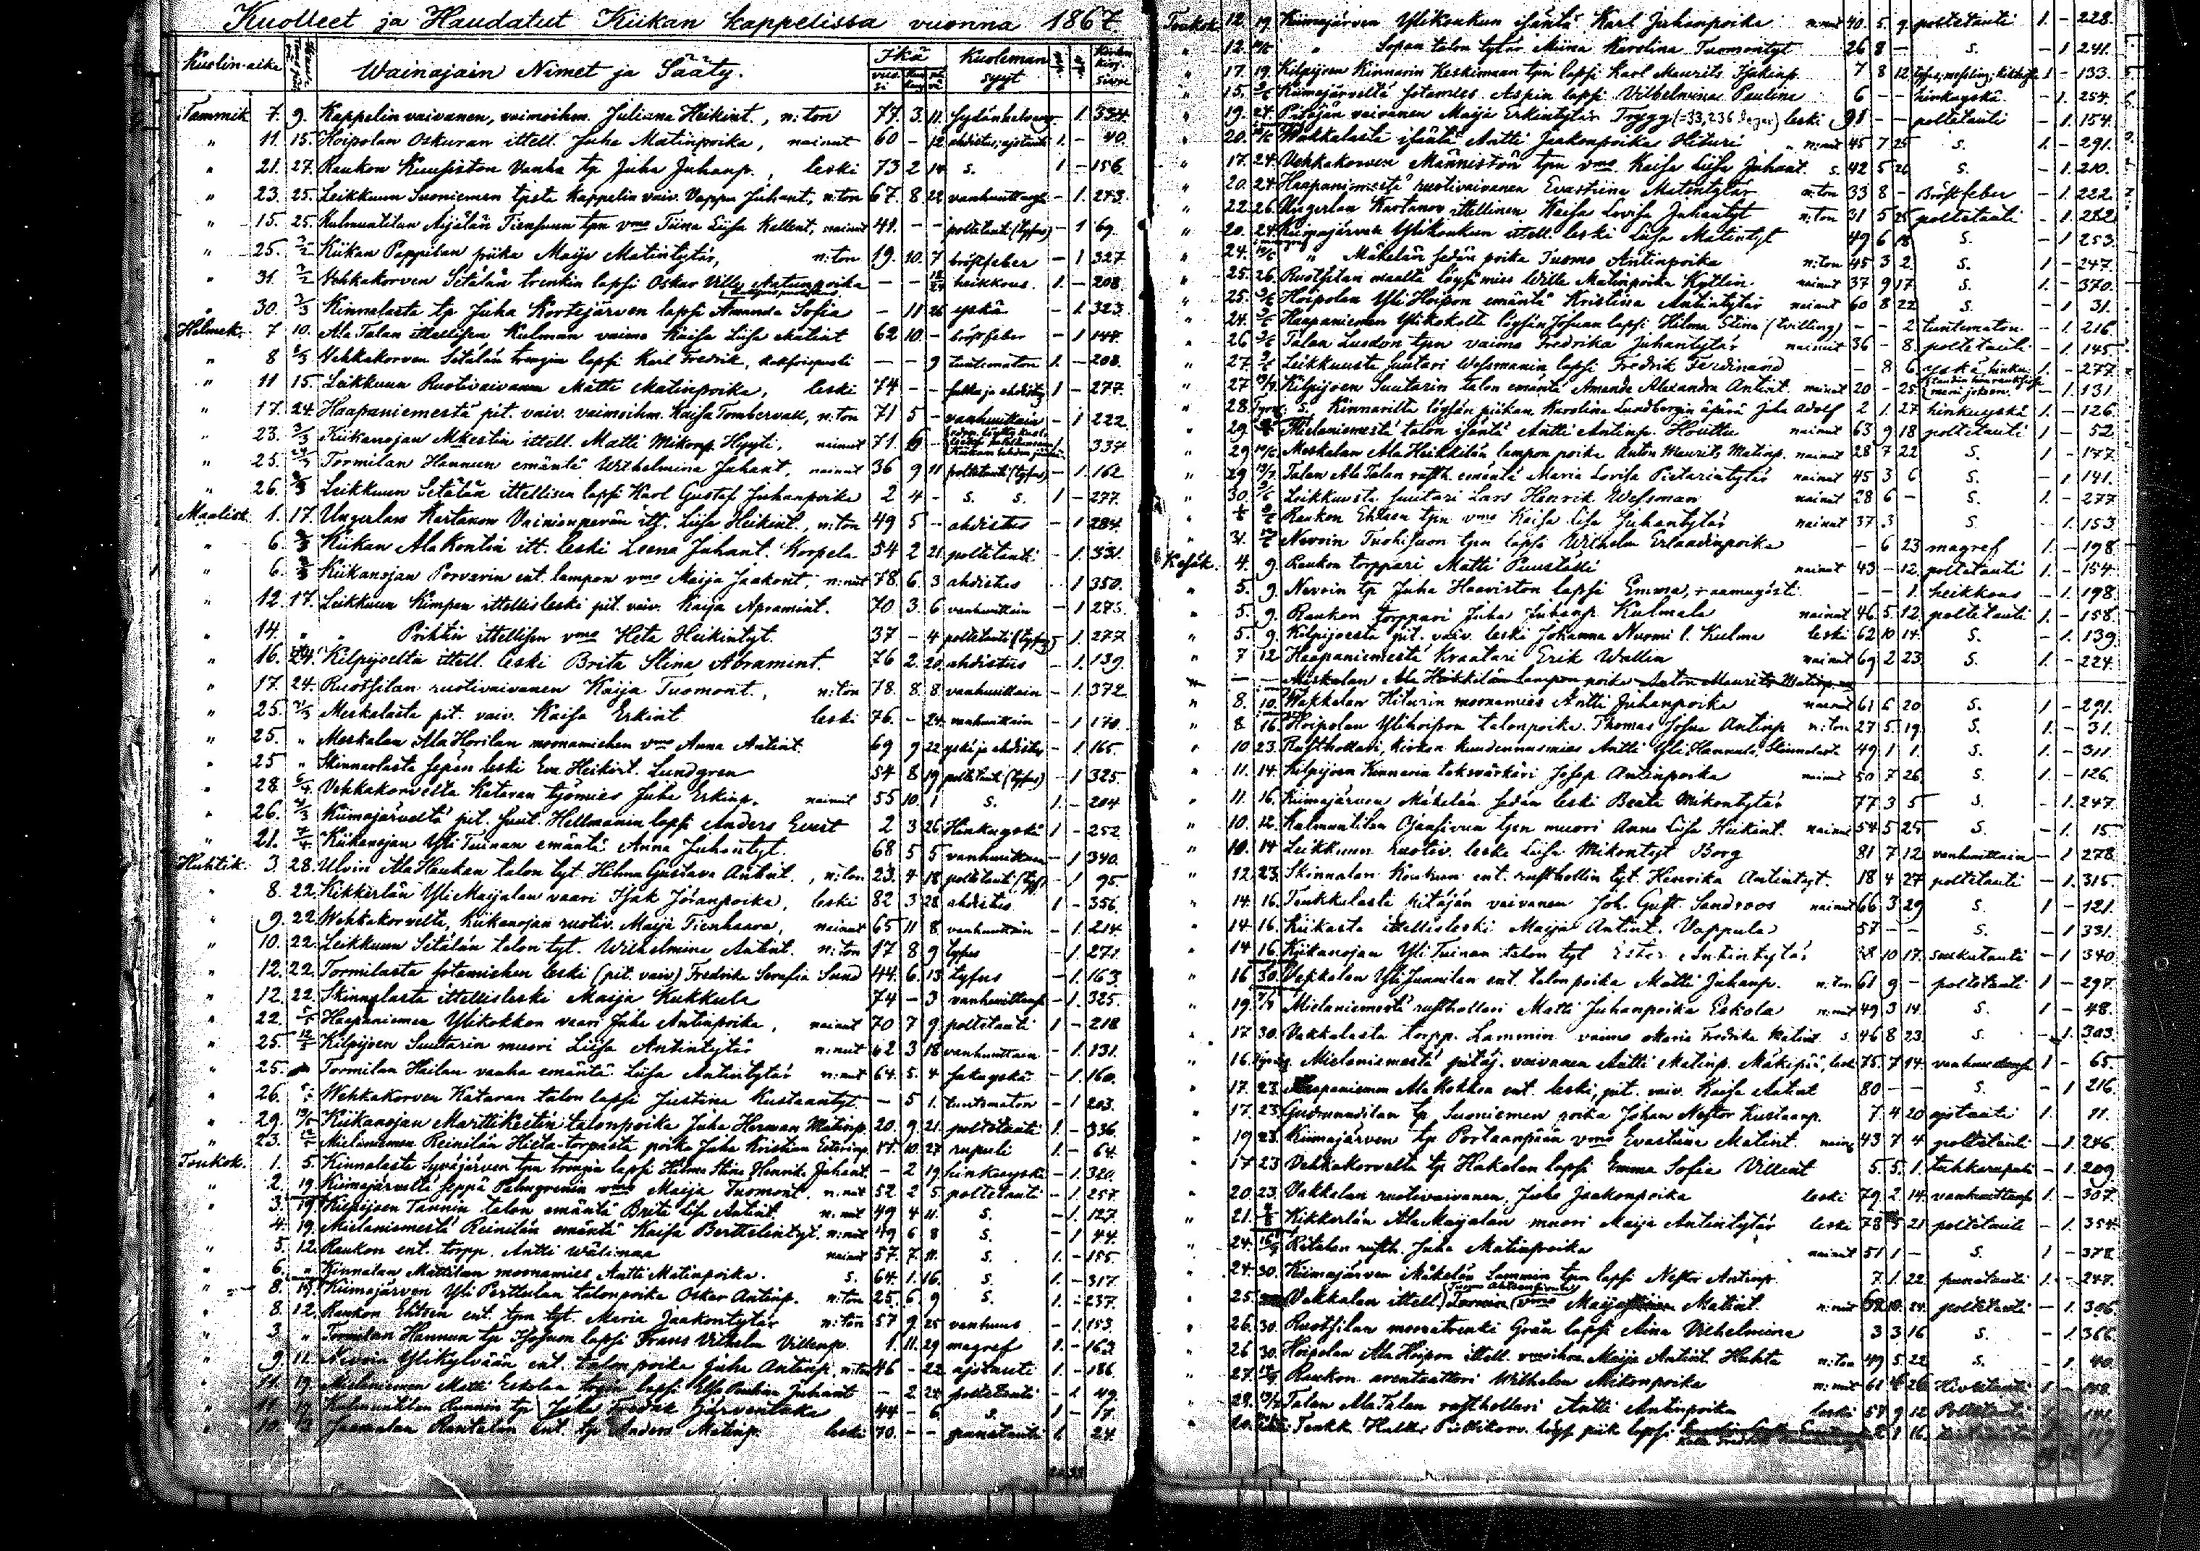 Kuolleet ja Haudatut Kiikan kappelissa vuonna 1867.
Kuolin-aika Wainajain Nimet ja Sääty. Ikä Kuoleman syyt
Tammik. 7. 9. Kappelin vaivanen, vaimoihm. Juliana Heikint., n:ton 77. 3. 11. - 1. 334.
" 11. 15. Hoipolan Oskuran ittell. Juha Matinpoika, nainut 60 - 12 1. - 40.
" 21. 27. Raukon Kuupiston Vanha tp Juha Juhanp., leski 73 2 14 s. 1 - 156.
" 23. 25. Leikkuun Suoniemen tpsta Kappelin vaiv. Vappu Juhant., n:ton 67. 8 22 - 1. 243.
" 15. 25. Kulmuntilan Äijälän tpn vmo Tiina Liisa Kallent., nainut 41. - - poltetauti (tyfus) - 1 69.
" 25. Kiikan Pappilan piika Maija Matintytär, n:ton 19. 10. 7 bröstfeber - 1 327.
" 31. Vehkakorven Setälän trenkin lapsi Oskar Ville Aatunpoika - - heikkous. 1. - 208.
" 30. Kinnalasta tp Juha Kortejärven lapsi Amanda Sofia - 11 26 yskä - 1. 323.
Helmik. 7 10. Ala Talan ittellisen Kulman vaimo Kaisa Liisa Matint 62 10. - bröstfeber - 1 144.
" 8 Vehkakorven Setälän trengin lapsi Karl Fredrik, - - 9 tuntematon 1. - 208.
" 11 15. Leikkuun Ruotivaivanen Matti Matinpoika, leski 74 - - 1 - 277.
" 17. 24. Haapaniemestä pit. vaiv. vaimoihm. Kaisa Tombervall, n:ton 71 5 - vanhuittain - 1 222.
" 23. Kiikanojan ittell. Matti Mikonp. Hyyti, nainut 71. 6 - 1. 334
" 25. Tormilan Hannun emäntä Wilhelmina Juhant., nainut 36 9 11 poltetauti (tyfus) - 1. 162.
" 26. Leikkuun Setälän ittellisen lapsi Karl Gustaf Juhanpoika 2 4 - s. s. 1 - 277.
Maalisk. 1. 17. Ungerlans Kartanon Vainionperän itt. Liisa Heikint., n:ton 49 5 - ahdistus - 1. 284.
" 6. Kiikan Ala Kontin itt. leski Leena Juhant. Korpela 54 2 21. poltetauti - 1. 331.
" 6. Kiikanojan Porvarin ent. lampon vmo Maija Jaakont, n:nut 78. 6. 3 ahdistus - 1 350.
" 12. 17. Leikkuun Kimpan ittellis leski pit. vaiv. Kaija Apramint. 70 3. 6 vanhuittain - 1 275.
" 14. " " ittellisen vmo Heta Heikintyt. 37 - 4 poltetauti (tyfus) - 1. 277.
" 16. 24. Kilpijoelta ittell. leski Brita Stina Abramint. 76 2. 20. ahdistus - 1. 139.
" 17. 24. Ruotsilan ruotivaivanen Kaija Tuomont., n:ton 78. 8. 8 vanhuittain - 1. 372.
" 25. Meskalasta pit. vaiv. Kaisa Erkint leski 76. - 24. vanhuittain - 1 170.
" 25. " Meskalan Ala Horilan muonamiehen vmo Anna Antint. 69 9 22 yskä ja ahdistus - 1 165.
" 25 " Skinnarlasta sepän leski Eva Heikint. Lundgren 54 8 19 poltetauti (tyfus) - 1 325.
" 28. Vehkakorvelta Kataran työmies Juha Erkinp. nainut 55 10. 1 s. 1. - 204
" 26. Kiimajärveltä pit. suut. Hellmanin lapsi Anders Evert 2 3 26 Hinkuyskä 1 - 252
" 21. Kiikanojan Yli Tuinan emäntä Anna Juhantyt. 68 5 5 vanhuittain - 1 340.
Huhtik. 3. 28. Ulvin Ala Haukan talon tyt. Helma Gustava Antint., n:ton 23. 4 18 poltetauti (tyf) - 1 95.
" 8. 22. Kikkerlän Yli Maijalan vaari Isak Jöranpoika, leski 82 3 28 ahdistus 1 - 356.
" 9. 22. Wehkakorvelta, Kiikanojan ruotiv. Maija Tienhaara, nainut 65 11 8 vanhuittain - 1. 214.
" 10. 22. Leikkuun Setälän talon tyt. Wilhelmina Antint. n:ton 17 8 9 tyfus - 1. 271.
" 12. 22. Tormilasta sotamiehen leski (pit. vaiv) Fredrika Serafia Sund 44. 6. 13 tyfus - 1. 163.
" 12. 22. Skinnalasta ittellisleski Maija Kukkula 74 - 3 - 1. 325.
" 22. Haapaniemen Ylikokkon vaari Juha Antinpoika, nainut 70 7 9 poltetauti 1 - 218
" 25. Kilpijoen Suutarin muori Liisa Antintytär n:nut 62 3 18 vanhuittain - 1. 131.
" 25. Tormilan Hailan vanha emäntä Liisa Antintytär n:nut 64. 5. 4 - 1. 160.
" 26. Wehkakorven Kataran talon lapsi Justina Kustaantyt. - 5 1. tuntematon - 1 203.
" 29. Kiikanojan Marttikestin talonpoika Juha Herman Matinp. 20. 9 21. poltetauti 1 - 336.
" 23. Mielaniemen Reinilän Hieta-torpasta poika Juha Kristian 17. 10. 27 rupuli 1 - 64.
Toukok. 1. 5. Kinnalasta Syväjärven tpn trengin lapsi Helma Stina Henrika Juhant. - 2 19 hinkuyskä - 1. 320.
" 2. 19. Kiimajärveltä seppä Palmgrenin vmo Maija Tuomont. n:nut 52. 2 5. poltetauti - 1. 257.
" 3. 19. Kilpijoen Tannin talon emäntä Brita Liisa Antint. n:nut 49 4 11. s. - 1. 127.
" 4. 19. Mielaniemestä Reinilän emäntä Kaisa Berttelintyt. n:nut 49 6 8 s. - 1 44.
" 5. 12. Raukon ent. torpp. Antti Wälimaa nainut 57. 7. 11. s. 1 - 155.
" 6. " Kinnalan Mattilan muonamies Antti Matinpoika. s. 64. 1. 16. s. 1 - 317.
" 8. 19. Kiimajärven Yli Perttulan talonpoika Oskar Antinp. n:ton 25. 6. 9 s. 1. - 237.
" 8. 12. Raukon Ehtsen ent. tpn tyt. Maria Jaakontytär n:ton 57 9 25 vanhuus - 1. 153.
" 3. " Tormilan Hannun tp lapsi Frans Vilhelm Villenp. 1. 11. 29 magref 1. - 163.
" 9. 11. Nivoin Ylikylvään ent. talonpoika Juha Antinp. n:ton 46 - 22 ajotauti 1 - 186.
" 11. 19. Mielaniemen Matti Eskolan trengin lapsi Elsa Paulina Juhant - 2 24 poltetauti - 1 49.
" 11 19 Kalmuntilan Rannin tp Juha Fredrik Järventaka 44 - 6. s. 1 - 17.
" 10. Jaamalan Rantalan ent. tp Anders Matinp. leski 70. - - punatauti 1 24.
Toukok. 12. 19. Kiimajärven Ylikoukun isäntä Karl Juhanpoika n:nut 40. 5. 9. poltetauti 1. - 228.
" 12. " Sepan talon tytär Miina Karolina Tuomontyt 26 8 - s. - 1 241.
" 17. 19. Kilpijoen Kinnarin Keskimaan tpn lapsi Karl Maurits Isakinp. 7 8 12. 1 - 133.
" 15. Kiimajärveltä sotamies Aspin lapsi Vilhelmina Paulina 6 - - hinkuyskä - 1. 254.
" 19. 24. Pitäjän vaivanen Maija Erkintytär Trygg (=33,236 dagar) leski 91 - - poltetauti - 1. 154.
" 20. Wakkalasta isäntä Antti Jaakonpoika Hituri n:nut 45 7 25 s. 1. - 291.
" 17. 24. Vehkakorven Männistön tpn vmo Kaisa Liisa Juhant. s. 42 5 26 s. - 1. 210.
" 20. 24. Haapaniemestä ruotivaivanen Evastiina Matintytär n:ton 33 8 - Bröstfeber - 1. 222.
" 22. 26. Ungerlan Kartanon ittellinen Kaisa Lovisa Juhantyt n:ton 31 5 25 poltetauti - 1 282.
" 20. 24. Kiimajärven Ylikoukun ittell. leski Liisa Matintyt 49 6 18 s. - 1 253.
" 24. " Mäkelän sedän poika Tuomo Antinpoika n:ton 45 3 2. s. 1 - 247.
" 25. 26. Ruotsilan maalta löysä mies Wille Matinpoika Kyttin nainut 37 9 17 s. 1 - 370.
" 25. Hoipolan Yli Hoipon emäntä Kristiina Antintytär nainut 60 8 22 s. - 1 31.
" 24. Haapaniemen Ylikokolta löysän Josuan lapsi Hilma Stina (tvilling) - - 2 tuntematon - 1. 216.
" 26 Talan Lusdon tpn vaimo Fredrika Juhantytär nainut 36 - 8. poltetauti - 1. 145.
" 27. Leikkuusta suutari Wessmanin lapsi Fredrik Ferdinand - 8 6 1. - 277.
" 27 Kilpijoen Suutarin talon emäntä Amanda Alexandra Antint. nainut 20 - 25. - 1. 131.
" 28. S. Kinnarilta löysän piikan Karolina Lundbergin äpärä Juha Adolf 2 1. 27 hinkuyskä 1. - 126.
" 29 Mielaniemestä talon isäntä Antti Antinp. Hovittu nainut 63 9 18 poltetauti 1 - 52.
" 29 Meskalan Ala Heikkilän lampon poika Anton Maurits Matinp. nainut 28 7 22 s. 1 - 177.
" 29 Talan Ala Talan rusth. emäntä Maria Lovisa Pietarintytär nainut 45 3 6 s. - 1. 141.
" 30. Leikkuusta suutari Lars Henrik Wessman nainut 28 6 - s. 1. - 277.
" Raukon Ehtsen tpn vmo Kaisa Liisa Juhantytär nainut 37 3 s. - 1. 153.
" 31. Nevoin Tuohisuon tpn lapsi Wilhelm Erlandinpoika - 6 23 magref 1. - 198.
Kesäk. 4. 9. Raukon torppari Matti Puustelli nainut 43 - 12. poltetauti 1 - 154.
" 5. 9. Nevoin tp Juha Haaviston lapsi Emma, - - 1. heikkous - 1. 198.
" 5 9. Raukon torppari Juha Juhanp. Kulmala nainut 46. 5. 12. poltetauti 1 - 158.
" 5. 9. Kilpijoesta pit. vaiv. leski Johanna Nurmi l. Kulma leski 62 10 14. s. - 1. 139.
" 7 12. Haapaniemestä Kraatari Erik Wallin nainut 69 2 23. s. 1. - 224.
" - - Meskalan Ala Heikkilän lampon poika Anton Maurits Matinp.
" 8. 10. Wakkalan Hiturin muonamies Antti Juhanpoika nainut 61 6 20 s. 1 - 291.
" 8 16. Hoipolan Ylihoipon talonpoika Thomas Josua Antinp n:ton 27 5. 19. s. 1 - 31.
" 10 23. Rusthollari, kirkon kuudennusmies Antti Yli Hannula, Skinnalasta 49 1. 1. s. 1 - 311.
" 11. 14. Kilpijoen Kinnarin taksvärkäri Josep Antinpoika nainut 50 7 26. s. 1. - 126.
" 11. 16. Kiimajärven Mäkelän sedän leski Beata Mikontytär 77 3 5 s. - 1. 247.
" 10. 12. Kalmuntilan Ojansivun tpn muori Anna Liisa Heikint. nainut 54 5 25. s. - 1. 15.
" 10. 14 Leikkuun ruotiv. leski Liisa Mikontyt Borg 81 7 12 vanhuittain - 1 278.
" 12. 23. Skinnalan Koukun ent. rusthollin tyt. Henrika Antintyt. 18 4 27 poltetauti - 1. 315.
" 14. 16. Teukkalasta pitäjän vaivanen Joh. Gust. Sandroos nainut 66 3 29 s. 1 - 121.
" 14. 16. Kiikasta ittellisleski Maija Antint. Vappula 57 - - s. - 1 331.
" 14 16. Kiikanojan Yli Tuinan talon tyt Ester Antintytär 38 10 17. - 1 340.
" 16 30. Vakkalan Yli Junnilan ent. talonpoika Matti Juhanp. n:ton 61 9 - poltetauti 1 - 297.
" 19. Mielaniemestä rusthollari Matti Juhanpoika Eskola n:nut 49 3 14. s. 1 - 48.
" 17 30. Vakkalasta torpp. Lammin vaimo Maria Fredrika Matint s. 46 8 23. s. - 1. 303.
" 16. Mielaniemestä pitäj. vaivanen Antti Matinp. Mäkipää, leski 75. 7 14. 1 - 65.
" 17. 23. Haapaniemen Ala Kokkon ent. leski, pit. vaiv. Kaisa Antint 80 - - s. - 1 216.
" 17. 23. tp Suoniemen poika Johan Nestor Kustaanp. 7. 4 20 ajotauti 1. 11.
" 19 23. Kiimajärven tp Portaanpään vmo Evastiina Matint. nain. 43 7 4 poltetauti - 1. 246.
" 17 23 Vehkakorvelta tp Hakalan lapsi Emma Sofia Villent 5. 5. 1. tuhkarupuli - 1 209
" 20. 23. Vakkalan ruotivaivanen, Juha Jaakonpoika leski 79. 2. 14. 1. - 307.
" 21. Kikkerlän Ala Maijalan muori Maija Antintytär leski 78 5 21 poltetauti - 1. 354.
" 24. Ritalan rusth. Juha Matinpoika nainut 51 1 - s. 1 - 378.
" 24. 30. Kiimajärven Mäkelän Lammin tpn lapsi Nestor Antinp. 7 1 22 punatauti 1. - 247.
" 25. Vakkalan ittell. vmo Maija Matint. n:nut 10. 24. poltetauti - 1. 306.
" 26. 30. Ruotsilan muonatrenki Grän lapsi Aina Vilhelmiina 3 3 16 s. - 1. 366.
" 26 30. Hoipolan Ala Hoipon ittell. vmoihm. Maija Antint. Huhta n:ton 49 5 22 s. - 1. 40.
" 27. Raukon arentaattori Wilhelm Mikonpoika n:nut 61 4 26 1 -
" 29. Talan Ala Talan rusthollari Antti Antinpoika leski 57 9 12 Poltetauti 1 141.
" 20. Teukk. piik lapsi 2 1 16.